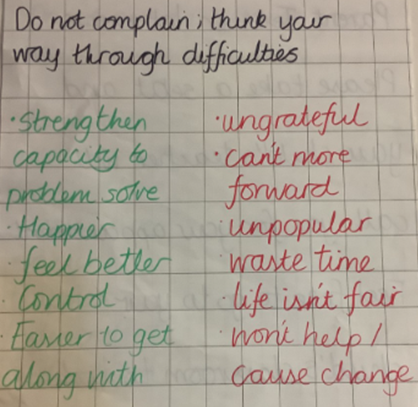 Do not complain; think your
way through difficulties
· strengthen
capacity to
problem solve
· Happier
· feel better
· Control
· Easier to get
along with
· ungrateful
· can't more
forward
· unpopular
· waste time
· life isn't fair
· won't help /
cause change